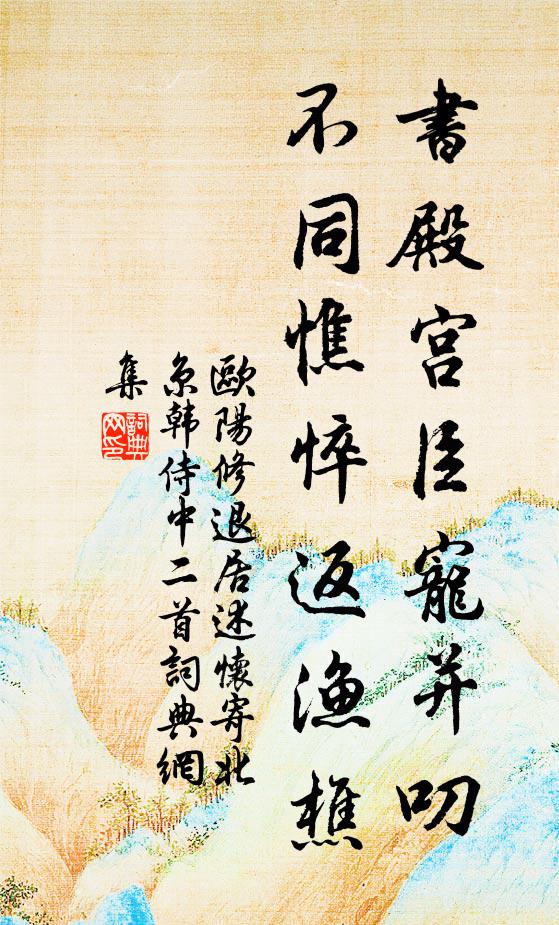 書殿宮臣寵并叨
不同憔悴返漁樵
歐陽修退居述懷寄北
京韩侍中二首詞典網
集
詞典
网印